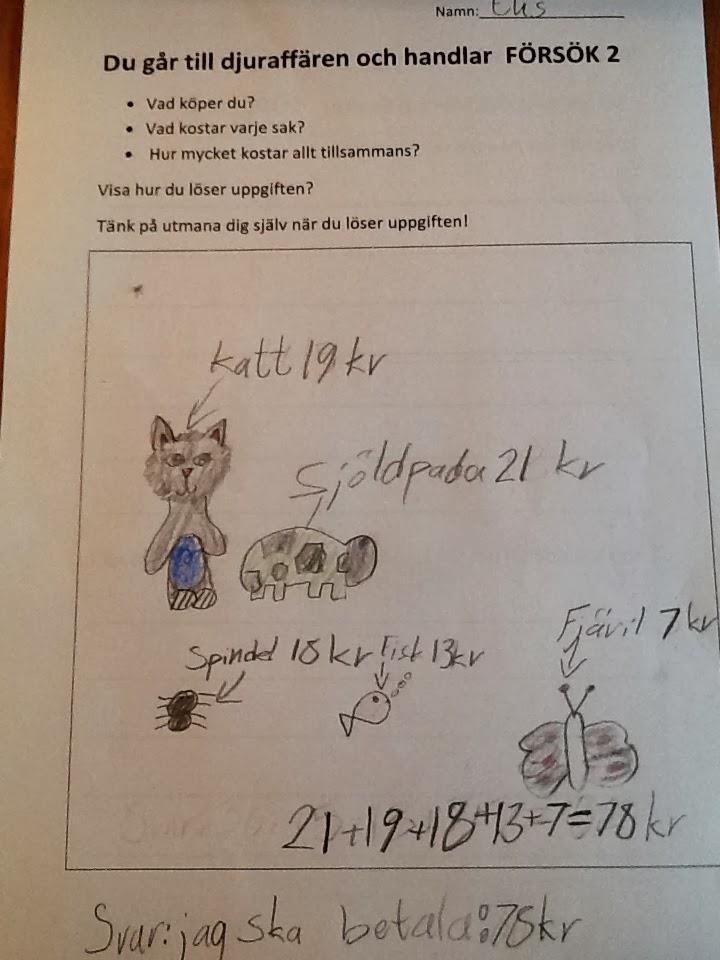 Namn: Elis
Du går till djuraffären och handlar FÖRSÖK 2
• Vad köper du?
• Vad kostar varje sak?
• Hur mycket kostar allt tillsammans?
Visa hur du löser uppgiften?
Tänk på utmana dig själv när du löser uppgiften!
katt 19 kr
Sjöldpada 21 kr
Fjäril 7 kr
Spindel 18 kr Fisk 13 kr
21+19+18+13+7=78 kr
Svar: jag ska betala: 78 kr